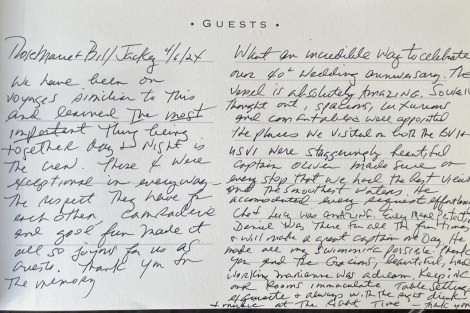 • GUESTS •
RoseMarie + Bill/Jackey 4/6/24
We have been on
voyages similiar to This
and learned The most
important Thing being
together Day & Night is
The crew. These 4 were
exceptional in every way -
The respect They have for
each other Comradere
and good fun made it
all so joyous for us as
Guests. Thank you for
The memory
What an incredible way to celebrate
our 40th Wedding anniversary. The
vessel is absolutely Amazing. So well
thought out, spacious, luxurious
and comfortable & well appointed
The places we visited on both the BVI +
USVI were staggeringly beautiful
Captain Oliver made sure on
every stop that we had the best views
and the smoothest waters. He
accomodated every request effortlessly
Chef Lucy was amazing. Every meal
Daniel was There for all the fun times
& will make a great captain one Day. He
made all our swimming possible. Thank
you and The Gracious, beautiful, hard
working Marianne was a dream. Keeping
our Rooms immaculate Table settings
exquisite & always with the right drink
+ music at The Right Time - Thank you